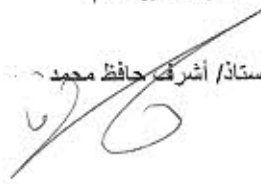 ستاذ/ أشرف حافظ محمد